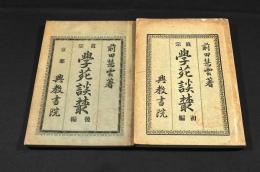 前田慧雲著
真宗
學苑談叢
後編
京都
興教書院
前田慧雲著
真宗
學苑談叢
初編
興教書院